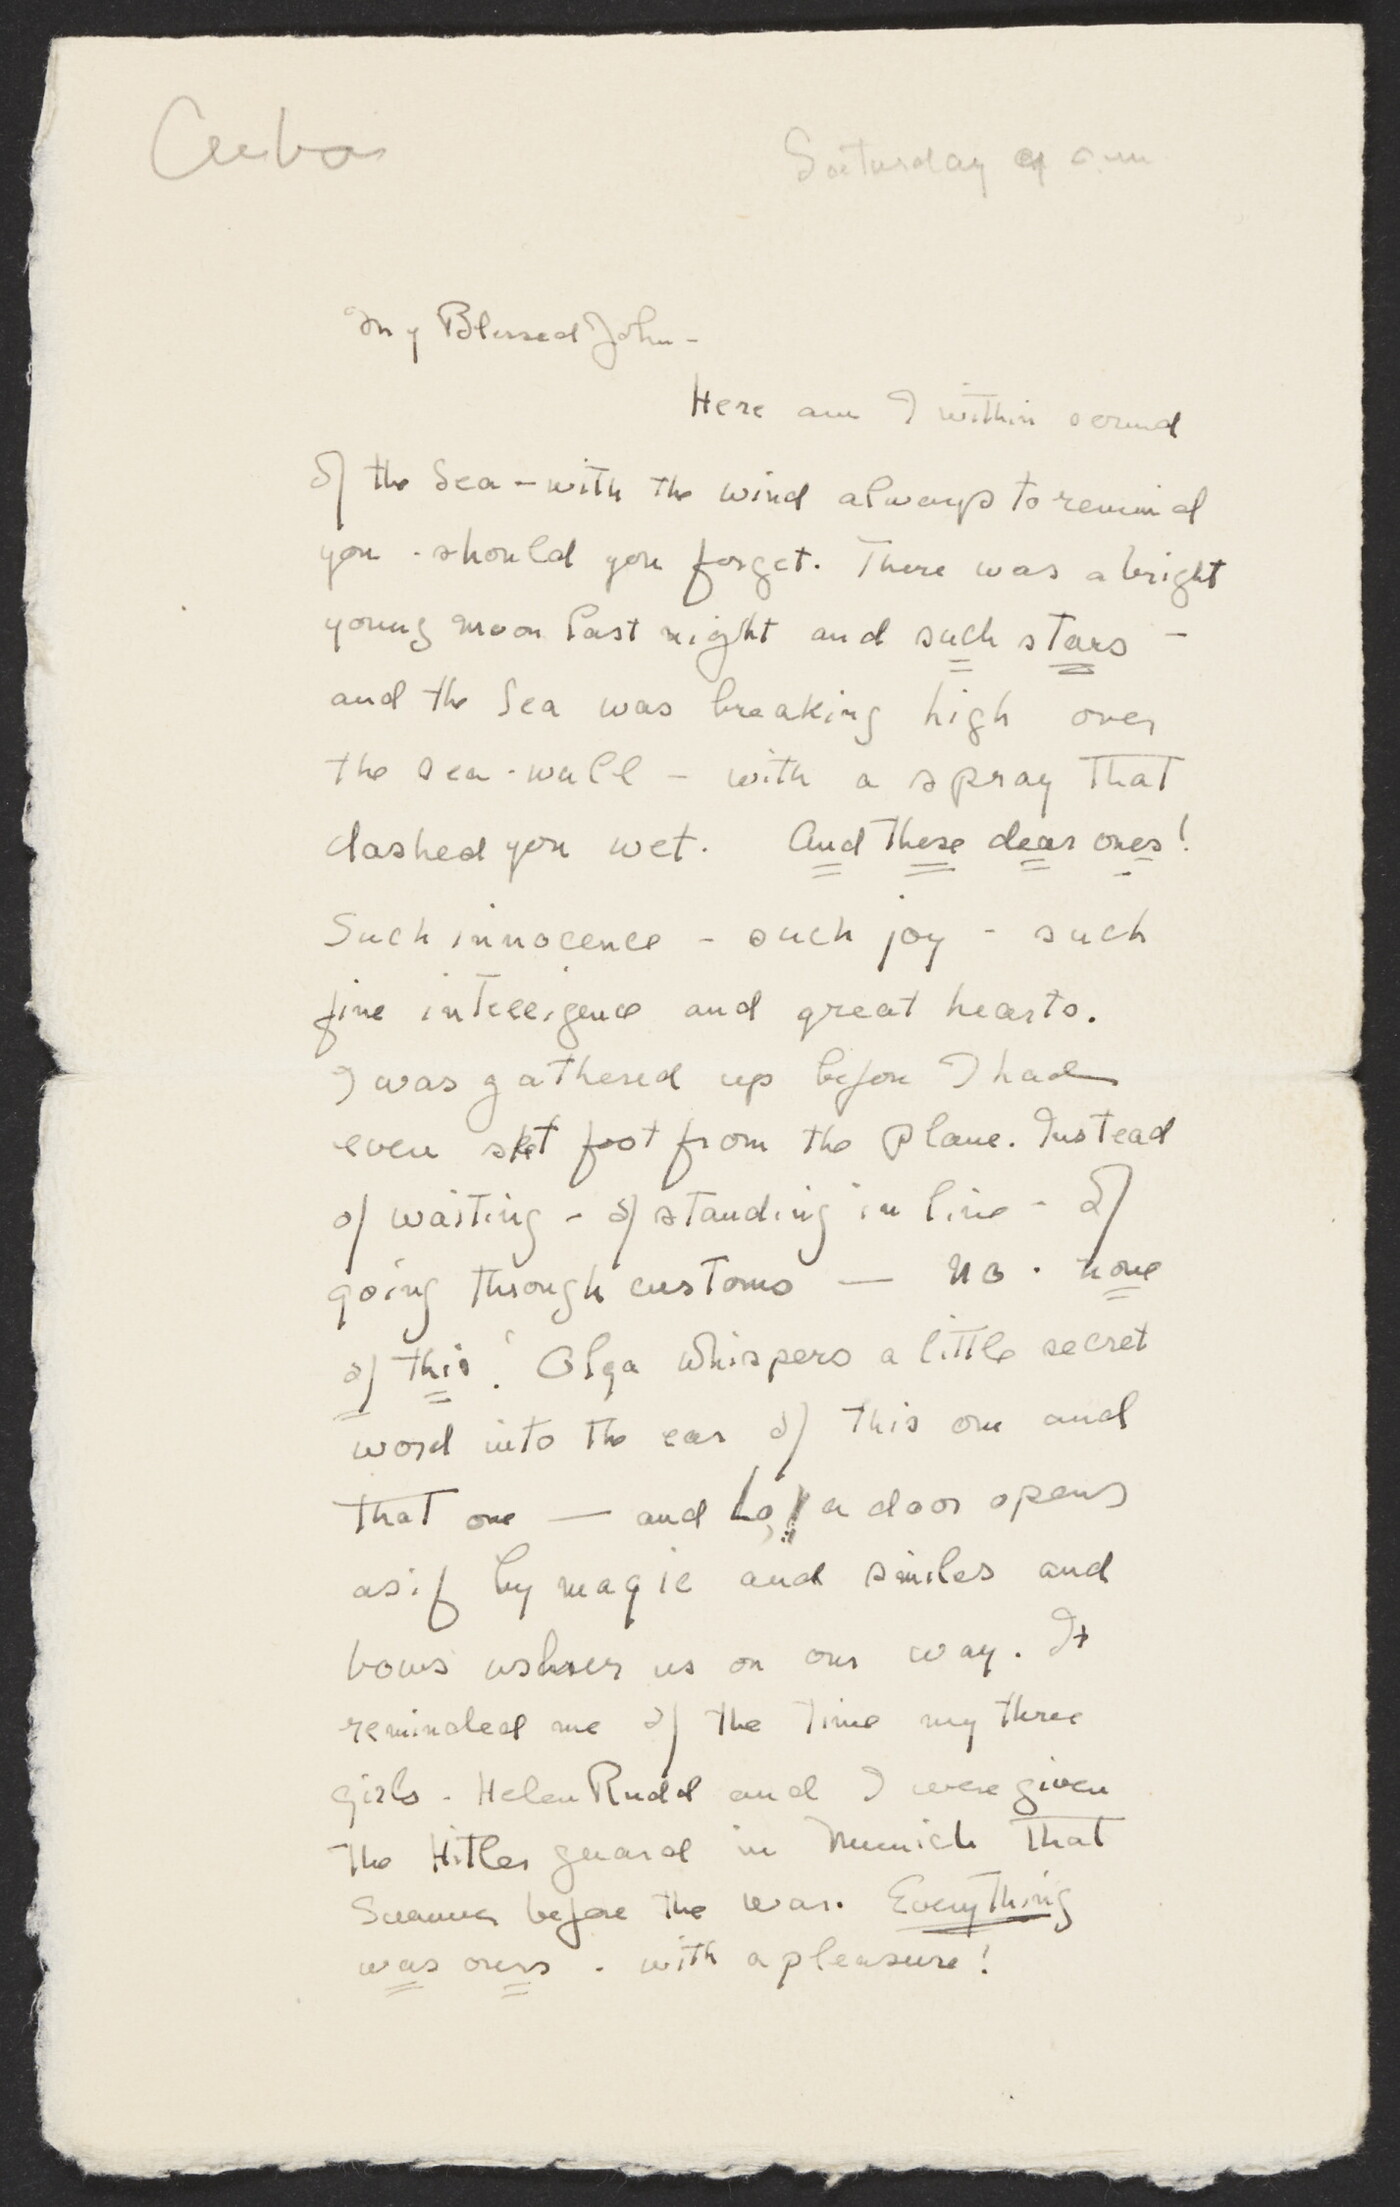 Cuba
Saturday a.m
My Blessed John -
Here am I within sound
of the Sea - with the wind always to remind
you - should you forget. There was a bright
young moon last night and such stars -
and the Sea was breaking high over
the sea-wall - with a spray that
dashed you wet. And these dear ones!
Such innocence - such joy - such
fine intelligence and great hearts.
I was gathered up before I had
even set foot from the plane. Instead
of waiting - of standing in line - of
going through customs — no - none
of this! Olga whispers a little secret
word into the ear of this one and
that one — and Lo, a door opens
as if by magic and smiles and
bows usher us on our way. It
reminded me of the time my three
girls - Helen Rudd and I were given
the Hitler guard in Munich that
Summer before the war. Everything
was ours - with a pleasure!